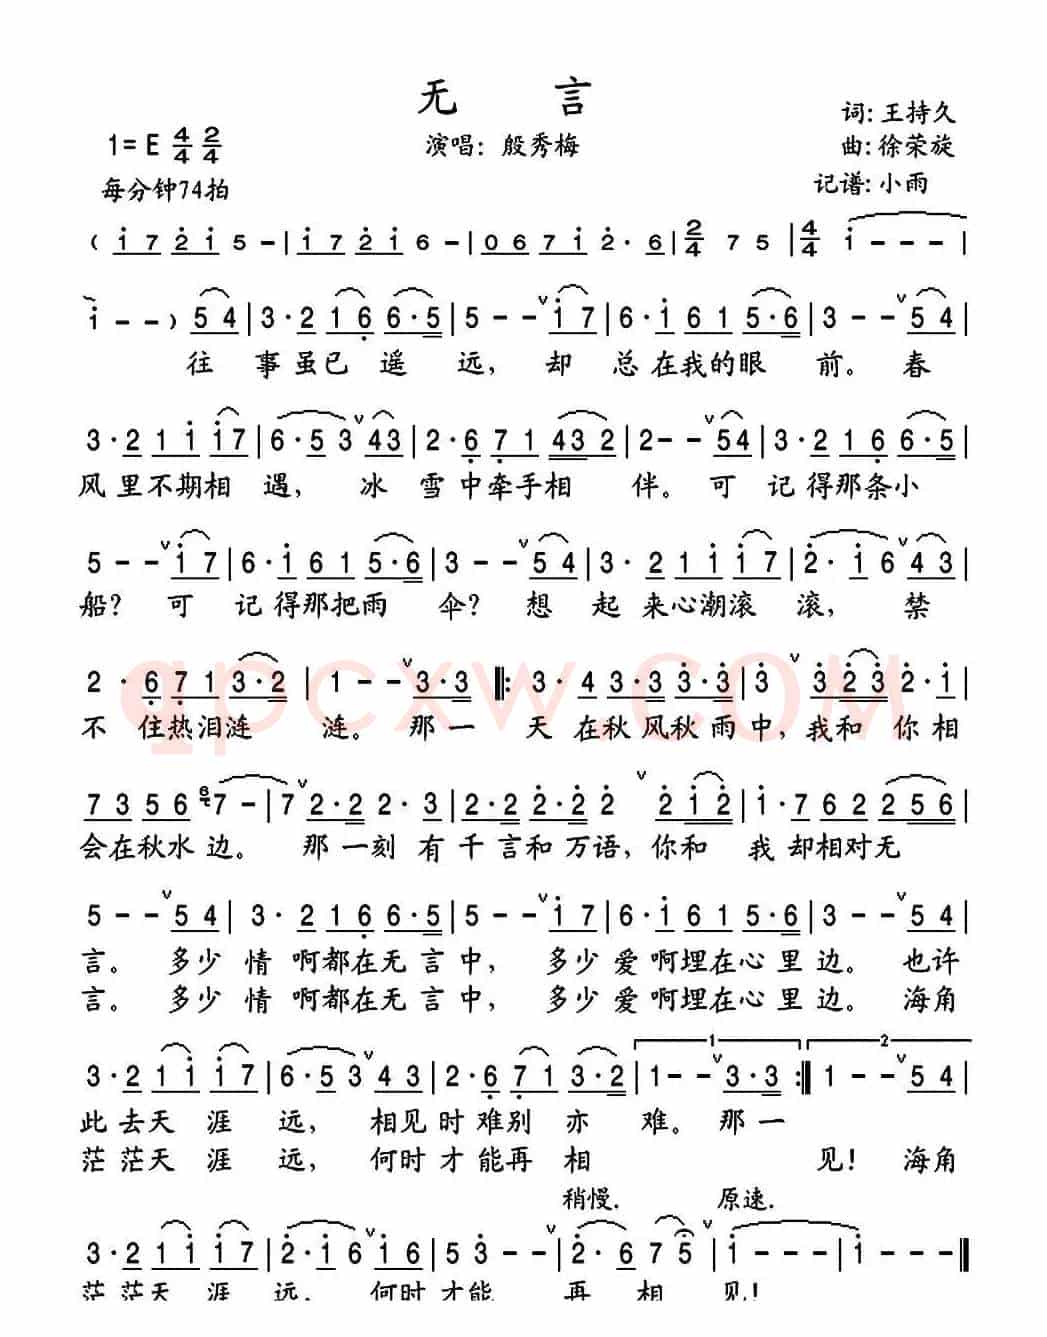 无 言
词: 王持久
1= E 4/4 2/4
演唱: 殷秀梅
曲: 徐荣旋
每分钟74拍
记谱: 小雨
( i 7 2 i 5 - | i 7 2 i 6 - | 0 6 7 i 2 · 6 | 2/4 7 5 | 4/4 i - - - |
i - - ) 5 4 | 3 · 2 1 6 6 · 5 | 5 - - v i 7 | 6 · i 6 1 5 · 6 | 3 - - v 5 4 |
往 事 虽已 遥 远, 却 总 在我的眼 前。 春
3 · 2 1 i i 7 | 6 · 5 3 v 4 3 | 2 · 6 7 1 4 3 2 | 2 - - v 5 4 | 3 · 2 1 6 6 · 5 |
风 里 不期相 遇, 冰 雪 中牵手相 伴。 可 记 得那条小
5 - - v i 7 | 6 · i 6 1 5 · 6 | 3 - - v 5 4 | 3 · 2 1 i i 7 | 2 · i 6 v 4 3 |
船? 可 记 得那把雨 伞? 想 起 来心潮滚 滚, 禁
2 · 6 7 1 3 · 2 | 1 - - v 3 · 3 |: 3 · 4 3 · 3 3 · 3 | 3 v 3 2 3 2 · i |
不 住热泪涟 涟。 那 一 天 在秋 风秋 雨 中, 我和 你 相
qpcxw.COM
7 3 5 6 6 7 - | 7 v 2 · 2 2 · 3 | 2 · 2 2 · 2 2 v 2 i 2 | i · 7 6 2 2 5 6 |
会在秋水 边。 那 一刻 有 千 言和 万语, 你和 我 却相对无
5 - - v 5 4 | 3 · 2 1 6 6 · 5 | 5 - - v i 7 | 6 · i 6 1 5 · 6 | 3 - - v 5 4 |
言。 多少 情 啊都在无 言 中, 多少 爱 啊埋在心 里 边。 也许
言。 多少 情 啊都在无 言 中, 多少 爱 啊埋在心 里 边。 海角
1 2
3 · 2 1 i i 7 | 6 · 5 3 v 4 3 | 2 · 6 7 1 3 · 2 | 1 - - v 3 · 3 :| 1 - - v 5 4 |
此 去天 涯 远, 相见 时 难别 亦 难。 那 一
茫 茫天 涯 远, 何时 才 能再 相 见! 海角
稍慢. 原速.
3 · 2 1 i i 7 | 2 · i 6 v i 6 | 5 3 - - v | 2 · 6 7 5 v | i - - - | i - - - ||
茫 茫天 涯 远, 何时 才能 再 相 见!